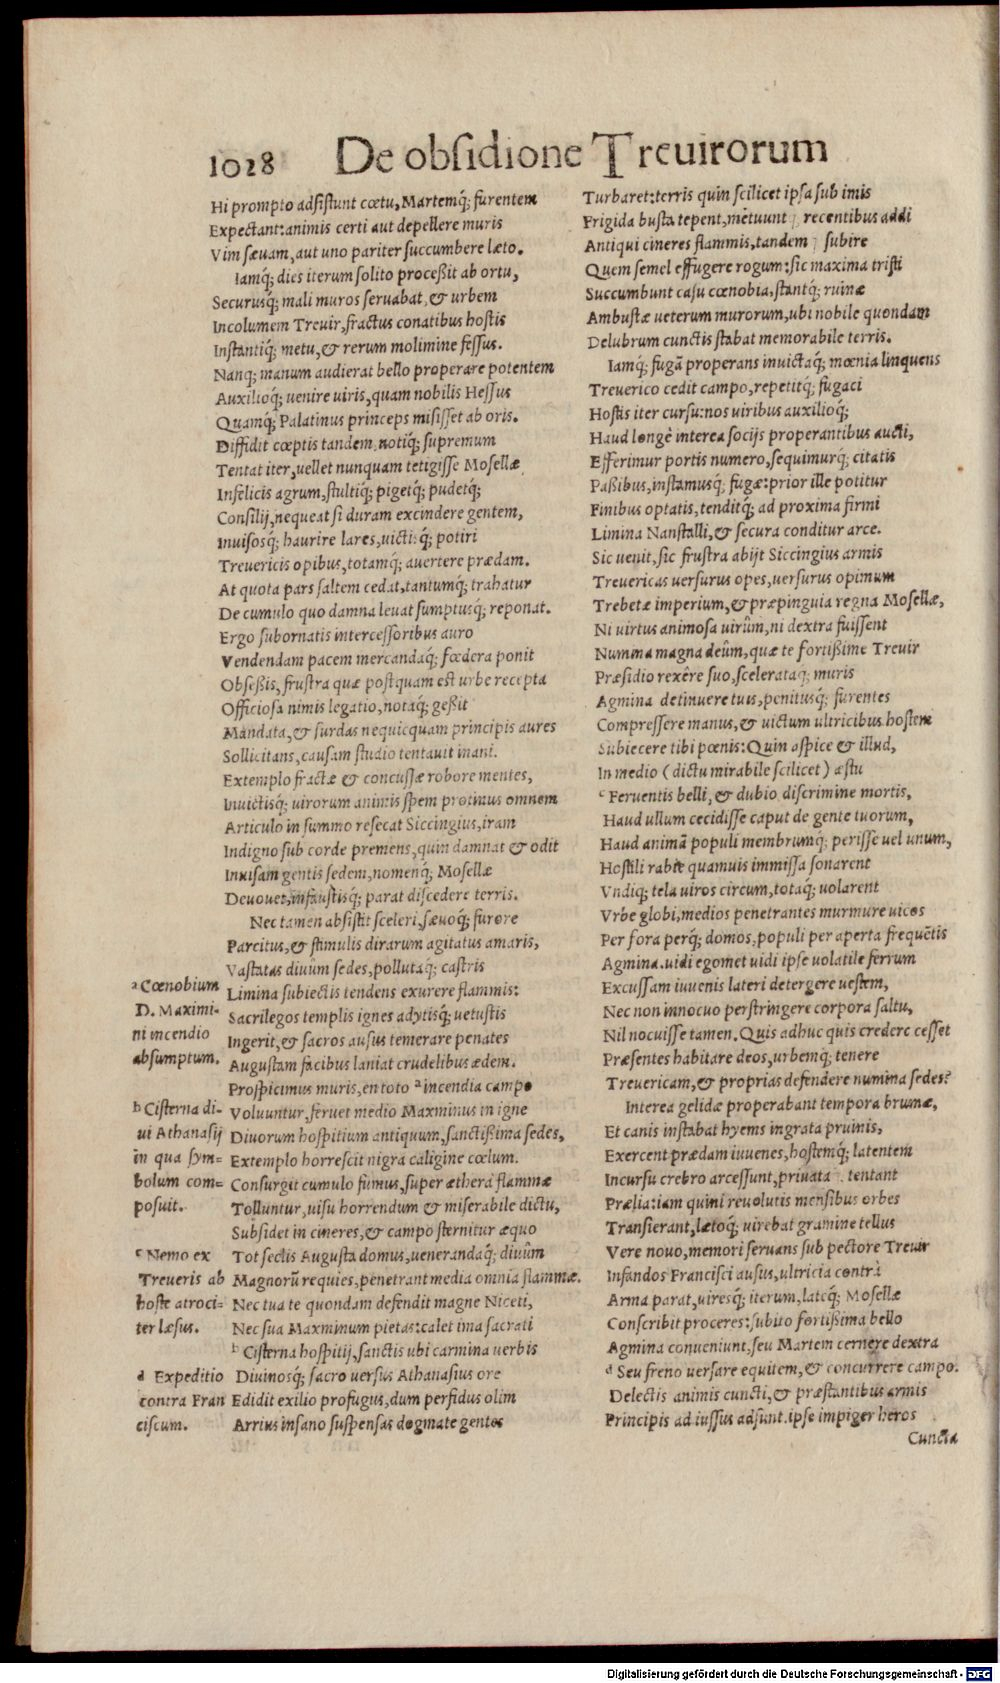 1028 De obsidione Treuirorum
Hi prompto adsistunt cœtu, Martemq́; furentem
Expectant: animis certi aut depellere muris
Vim sæuam, aut uno pariter succumbere læto.
Iamq́; dies iterum solito proceßit ab ortu,
Securusq́; mali muros seruabat, & urbem
Incolumem Treuir, fractus conatibus hostis
Instantiq́; metu, & rerum molimine fessus.
Nanq; manum audierat bello properare potentem
Auxilioq́; uenire uiris, quam nobilis Hessus
Quamq́; Palatinus princeps misisset ab oris.
Diffidit cœptis tandem, notiq́; supremum
Tentat iter, uellet nunquam tetigisse Mosellæ
Infelicis agrum, stultiq́; pigetq́; pudetq́;
Consilij, nequeat si duram excindere gentem,
Inuisosq́; haurire lares, uictisq́; potiri
Treuericis opibus, totamq́; auertere prædam.
At quota pars saltem cedat, tantumq́; trahatur
De cumulo quo damna leuat sumptusq́; reponat.
Ergo subornatis intercessoribus auro
Vendendam pacem mercandaq́; fœdera ponit
Obseßis, frustra quæ postquam est urbe recepta
Officiosa nimis legatio, notaq́; geßit
Mandata, & surdas nequicquam principis aures
Sollicitans, causam studio tentauit inani.
Extemplo fractæ & concussæ robore mentes,
Inuictisq́; uirorum animis spem protinus omnem
Articulo in summo resecat Siccingius, iram
Indigno sub corde premens, quin damnat & odit
Inuisam gentis sedem, nomenq́; Mosellæ
Deuouet, infaustisq́; parat discedere terris.
Nec tamen absistit sceleri, sæuoq́; furore
Parcitus, & stimulis dirarum agitatus amaris,
Vastatas diuûm sedes, pollutaq́; castris
Limina subiectis tendens exurere flammis:
Sacrilegos templis ignes adytisq́; uetustis
Ingerit, & sacros ausus temerare penates
Augustam facibus laniat crudelibus ædem.
Prospicimus muris, en toto ᵃ incendia campo
Voluuntur, feruet medio Maxminus in igne
Diuorum hospitium antiquum, sanctißima sedes,
Extemplo horrescit nigra caligine cœlum.
Consurgit cumulo fumus, super æthera flammæ
Tolluntur, uisu horrendum & miserabile dictu,
Subsidet in cineres, & campo sternitur æquo
Tot seclis Augusta domus, uenerandaq́; diuûm
Magnorū requies, penetrant media omnia flammæ.
Nec tua te quondam defendit magne Niceti,
Nec sua Maxminum pietas: calet ima sacrati
ᵇ Cisterna hospitij, sanctis ubi carmina uerbis
Diuinosq́; sacro uersus Athanasius ore
Edidit exilio profugus, dum perfidus olim
Arrius insano suspensas dogmate gentes
ᵃ Cœnobium
D. Maximi-
ni incendio
absumptum.
ᵇ Cisterna di-
ui Athanasij
in qua sym-
bolum com-
posuit.
ᶜ Nemo ex
Treueris ab
hoste atroci-
ter læsus.
ᵈ Expeditio
contra Fran
ciscum.
Turbaret: terris quin scilicet ipsa sub imis
Frigida busta tepent, metuunt recentibus addi
Antiqui cineres flammis, tandem subire
Quem semel effugere rogum: sic maxima tristi
Succumbunt casu cœnobia, stantq́; ruinæ
Ambustæ ueterum murorum, ubi nobile quondam
Delubrum cunctis stabat memorabile terris.
Iamq́; fugā properans inuictaq́; mœnia linquens
Treuerico cedit campo, repetitq́; fugaci
Hostis iter cursu: nos uiribus auxilioq́;
Haud longè interea socijs properantibus aucti,
Efferimur portis numero, sequimurq́; citatis
Paßibus, instamusq́; fugæ: prior ille potitur
Finibus optatis, tenditq́; ad proxima firmi
Limina Nanstalli, & secura conditur arce.
Sic uenit, sic frustra abijt Siccingius armis
Treuericas uersurus opes, uersurus opimum
Trebetæ imperium, & præpinguia regna Mosellæ,
Ni uirtus animosa uirûm, ni dextra fuissent
Numina magna deûm, quæ te fortißime Treuir
Præsidio rexêre suo, scelerataq́; muris
Agmina detinuere tuis, penitusq́; furentes
Compressere manus, & uictum ultricibus hostem
Subiecere tibi pœnis: Quin aspice & illud,
In medio (dictu mirabile scilicet) æstu
ᶜ Feruentis belli, & dubio discrimine mortis,
Haud ullum cecidisse caput de gente tuorum,
Haud animā populi membrumq́; perisse uel unum,
Hostili rabie quamuis immissa sonarent
Vndiq; tela uiros circum, totaq́; uolarent
Vrbe globi, medios penetrantes murmure uicos
Per fora perq́; domos, populi per aperta frequētis
Agmina. uidi egomet uidi ipse uolatile ferrum
Excussam iuuenis lateri detergere uestem,
Nec non innocuo perstringere corpora saltu,
Nil nocuisse tamen. Quis adhuc quis credere cesset
Præsentes habitare deos, urbemq́; tenere
Treuericam, & proprias defendere numina sedes?
Interea gelidæ properabant tempora brumæ,
Et canis instabat hyems ingrata pruinis,
Exercent prædam iuuenes, hostemq́; latentem
Incursu crebro arcessunt, priuata tentant
Prælia: iam quini reuolutis mensibus orbes
Transierant, lætoq́; uirebat gramine tellus
Vere nouo, memori seruans sub pectore Treuir
Infandos Francisci ausus, ultricia contrà
Arma parat, uiresq́; iterum, lateq́; Mosellæ
Conscribit proceres: subito fortißima bello
Agmina conueniunt, seu Martem cernere dextra
ᵈ Seu freno uersare equitem, & concurrere campo.
Delectis animis cuncti, & præstantibus armis
Principis ad iussus adsunt. ipse impiger heros
Cuncta
Digitalisierung gefördert durch die Deutsche Forschungsgemeinschaft - DFG